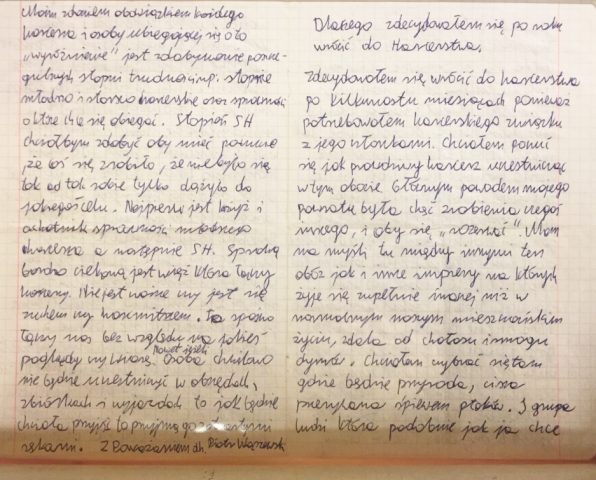 Moim zdaniem obowiązkiem każdego
harcerza i osoby ubiegającej się o to
"wyróżnienie" jest zdobywanie poszcze-
gólnych stopni trudności np. stopnie
młodzika i starsze harcerskie oraz sprawności
o które chcę się ubiegać. Stopień SH
chciałbym zdobyć aby mieć poczucie
że coś się zrobiło, że nie było się
tak od tak sobie tylko dążyło do
jakiegoś celu. Najpierw jest krzyż i
sprawności młodego
harcerza a następnie SH. Sprawą
bardzo ciekawą jest więź która łączy
harcerzy. Nie jest ważne czy jest się
zuchem czy harcmistrzem. To sprawa
łączy nas bez względu na jakieś
poglądy czy wiarę. Nawet jeżeli osoba chwilowo
nie będzie uczestniczyć w obrzędach,
zbiórkach i wyjazdach to jak będzie
chciała przyjść to przyjmą go z otwartymi
rękami. Z Poważaniem dh. Piotr
Dlaczego zdecydowałem się po roku
wrócić do Harcerstwa.
Zdecydowałem się wrócić do harcerstwa
po kilkunastu miesiącach ponieważ
potrzebowałem harcerskiego związku
z jego członkami. Chciałem poczuć
się jak prawdziwy harcerz uczestnicząc
w tym obozie. Głównym powodem mojego
powrotu była chęć zrobienia czegoś
innego, i aby się "rozerwać". Mam
na myśli tu między innymi ten
obóz jak i inne imprezy na których
żyje się zupełnie inaczej niż w
normalnym naszym mieszczańskim
życiu, zdala od hałasu i smogu
dymów. Chciałem wybrać się tam
gdzie będzie przyroda, cisza
przerywana śpiewem ptaków. I grupa
ludzi która podobnie jak ja chce